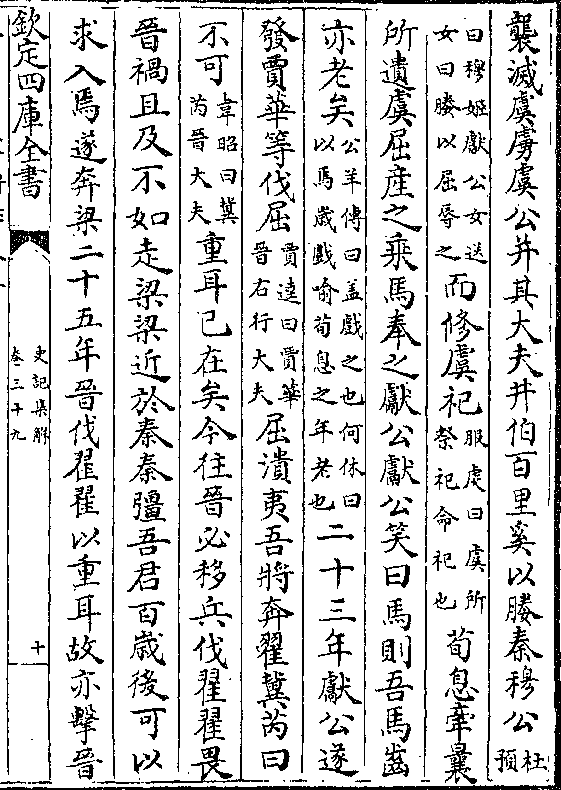 襲滅虞虜虞公并其大夫井伯百里奚以媵秦穆公杜預
曰穆姬獻公女送女曰媵以屈辱之而修虞祀服虔曰虞所祭祀命祀也荀息牽曩
所遺虞屈産之乘馬奉之獻公獻公笑曰馬則吾馬齒
亦老矣公羊傳曰盖戲之也何休曰以馬歲戲喻荀息之年老也二十三年獻公遂
發賈華等伐屈賈逵曰賈華晉右行大夫屈潰夷吾將奔翟冀芮曰
不可韋昭曰冀芮晉大夫重耳已在矣今往晉必移兵伐翟翟畏
晉禍且及不如走梁梁近於秦秦彊吾君百歲後可以
求入焉遂奔梁二十五年晉伐翟翟以重耳故亦擊晉
欽定四庫全書
史記集解
卷三十九
十